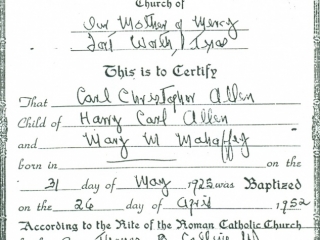 Church of
Our Mother of Mercy
Fort Worth, Texas
This is to Certify
That Carl Christopher Allen
Child of Harry Carl Allen
and Mary M Mahaffey
born in on the
31 day of May 1925 was Baptized
on the 26 day of April 1952
According to the Rite of the Roman Catholic Church
by the Rev. Thomas